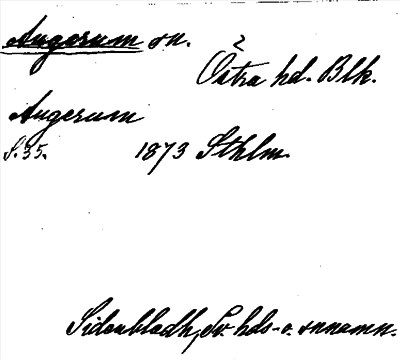 Augerum sn.
2
Östra hd. Blk.
Augerum
S. 35. 1873 Sthlm.
Sidenbladh, Sv. hds- o. snnamn.